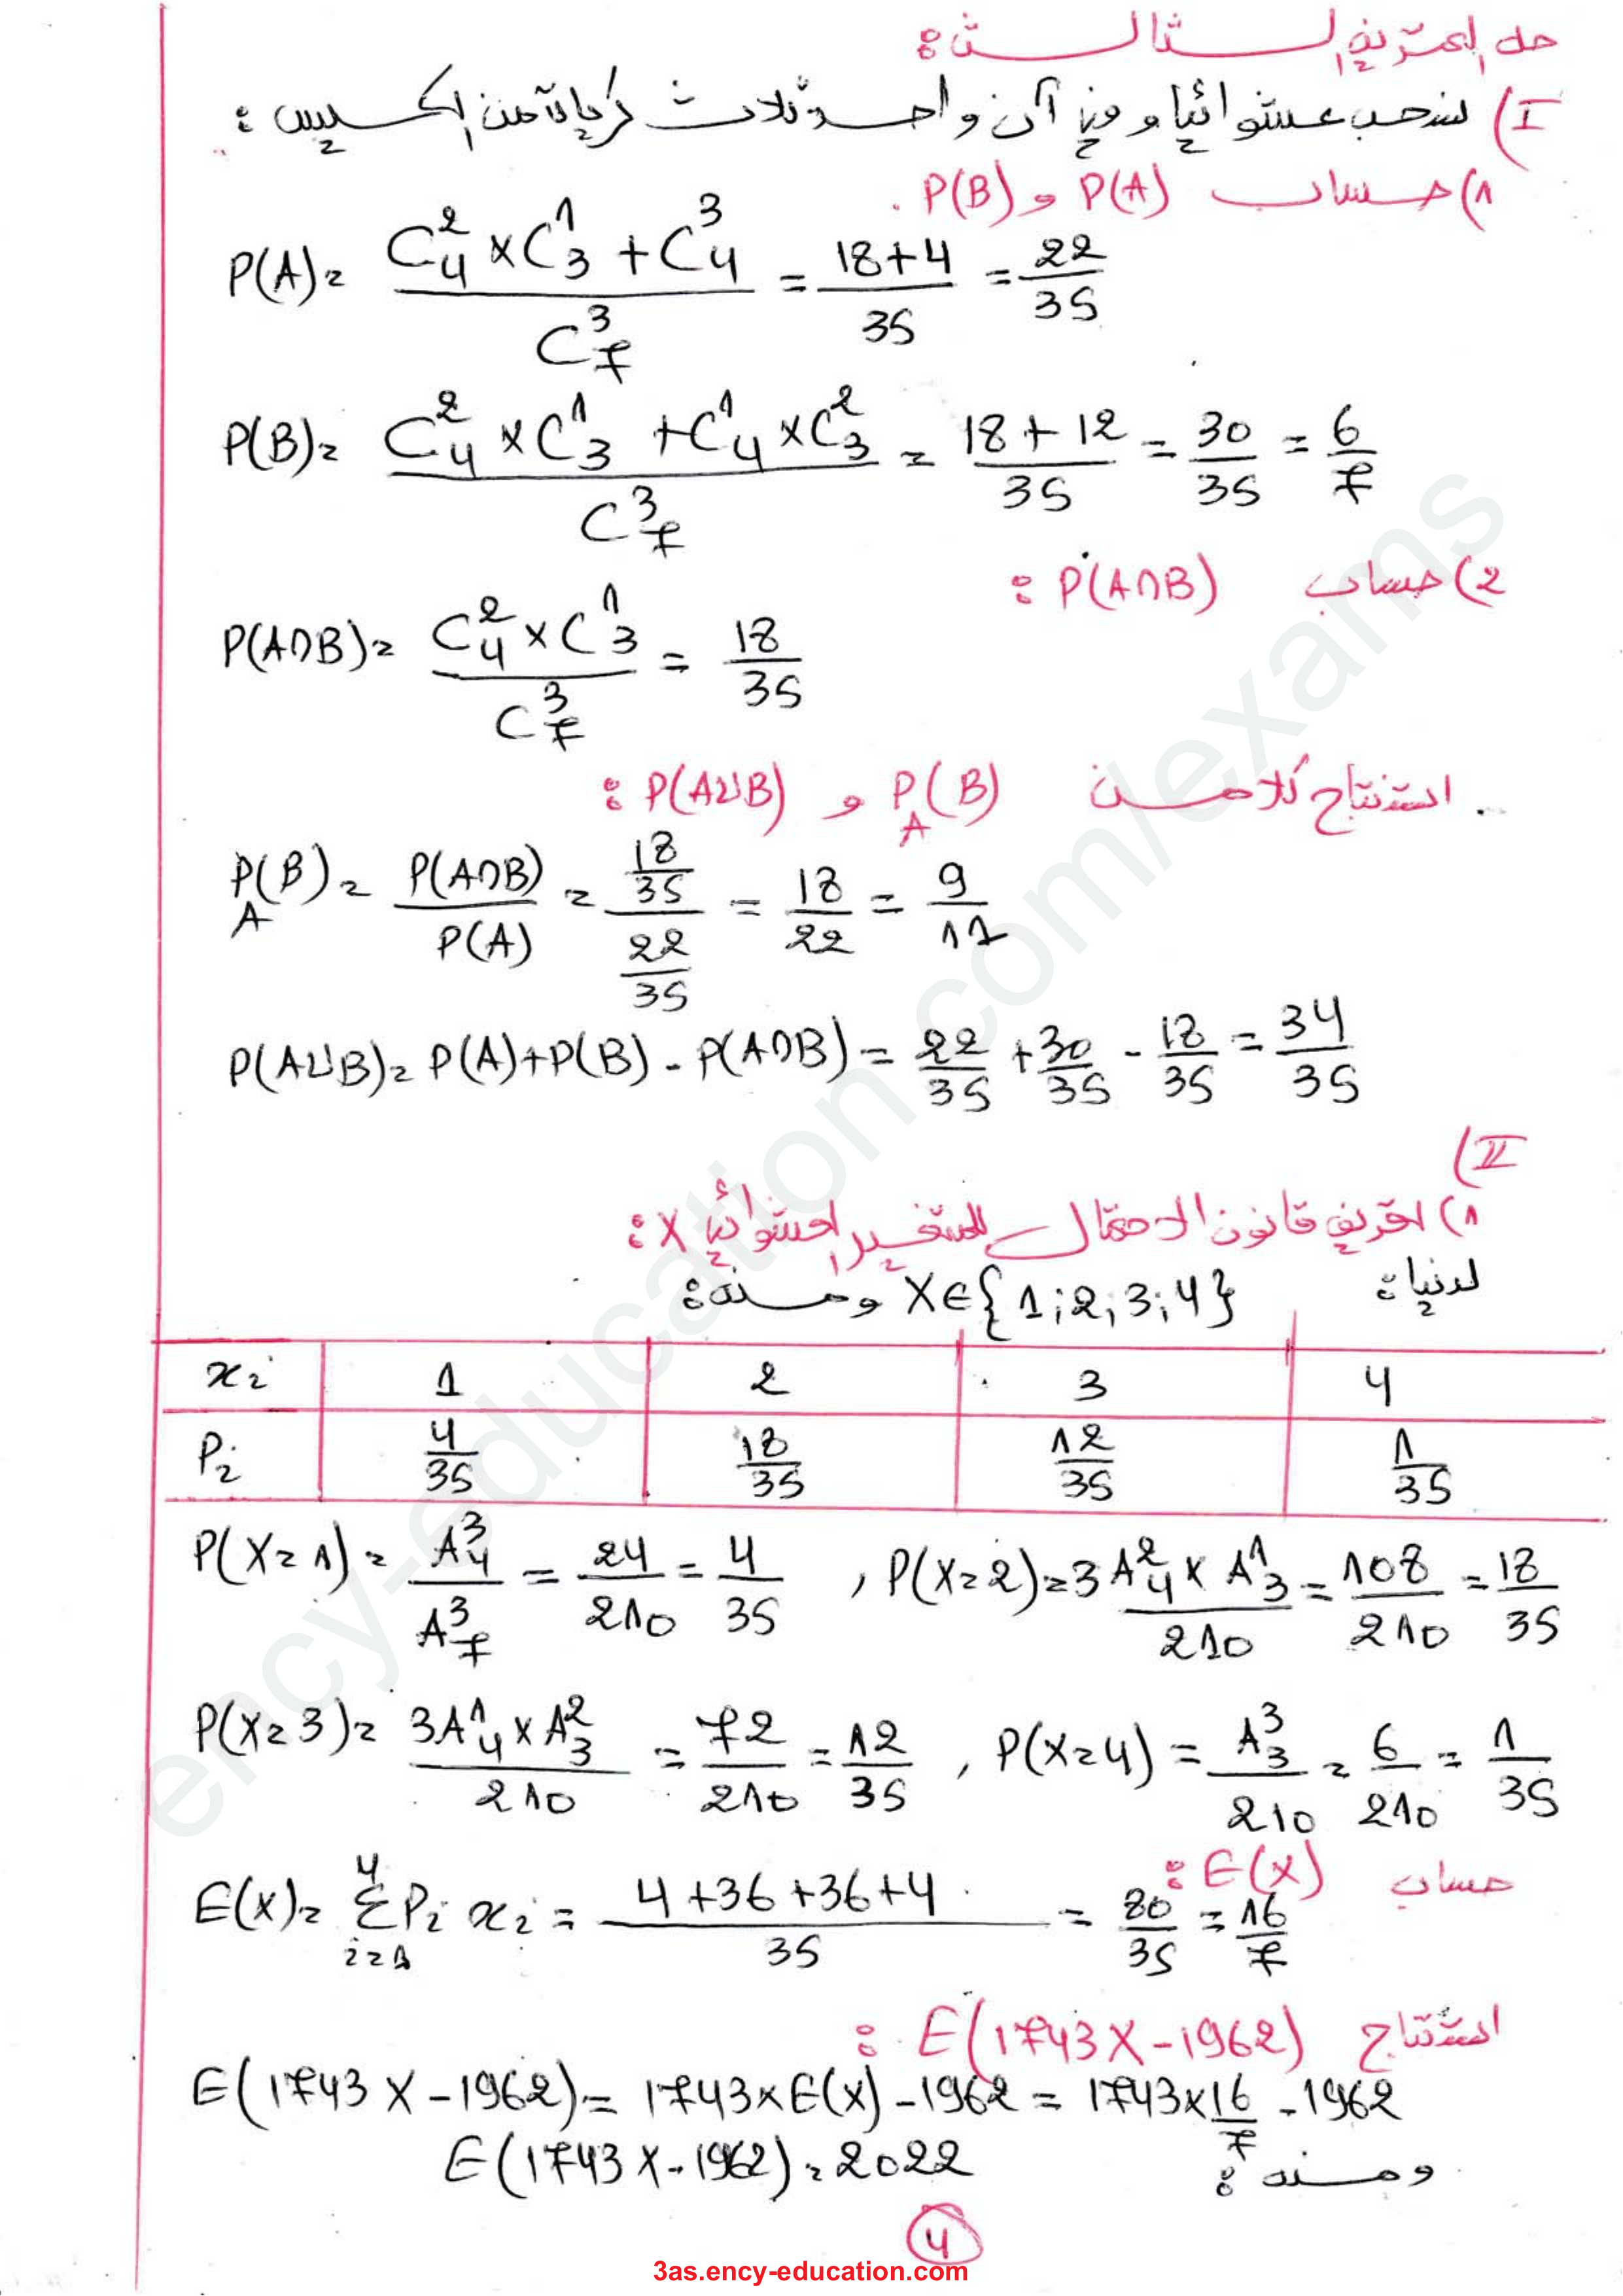 حل التمرين الثالث:
I) نسحب عشوائيا وفي آن واحد ثلاث كريات من الكيس:
1) حساب P(A) و P(B).
P(A) = (C_4^2 × C_3^1 + C_4^3) / C_7^3 = (18+4)/35 = 22/35
P(B) = (C_4^2 × C_3^1 + C_4^1 × C_3^2) / C_7^3 = (18+12)/35 = 30/35 = 6/7
2) حساب P(A∩B):
P(A∩B) = (C_4^2 × C_3^1) / C_7^3 = 18/35
. استنتاج كلا من P_A(B) و P(A∪B):
P_A(B) = P(A∩B)/P(A) = (18/35)/(22/35) = 18/22 = 9/11
P(A∪B) = P(A)+P(B) - P(A∩B) = 22/35 + 30/35 - 18/35 = 34/35
II)
1) تعريف قانون الاحتمال للمتغير العشوائي X:
لدينا: X∈{1;2;3;4} ومنه:
x_i 1 2 3 4
P_i 4/35 18/35 12/35 1/35
P(X=1) = A_4^3 / A_7^3 = 24/210 = 4/35 , P(X=2) = 3A_4^2 × A_3^1 / 210 = 108/210 = 18/35
P(X=3) = 3A_4^1 × A_3^2 / 210 = 72/210 = 12/35 , P(X=4) = A_3^3 / 210 = 6/210 = 1/35
حساب E(X):
E(X) = Σ_{i=1}^4 P_i x_i = (4+36+36+4)/35 = 80/35 = 16/7
استنتاج E(1743X-1962):
E(1743X-1962) = 1743×E(X)-1962 = 1743×16/7 - 1962
ومنه: E(1743X-1962) = 2022
4
3as.ency-education.com
ency-education.com/exams